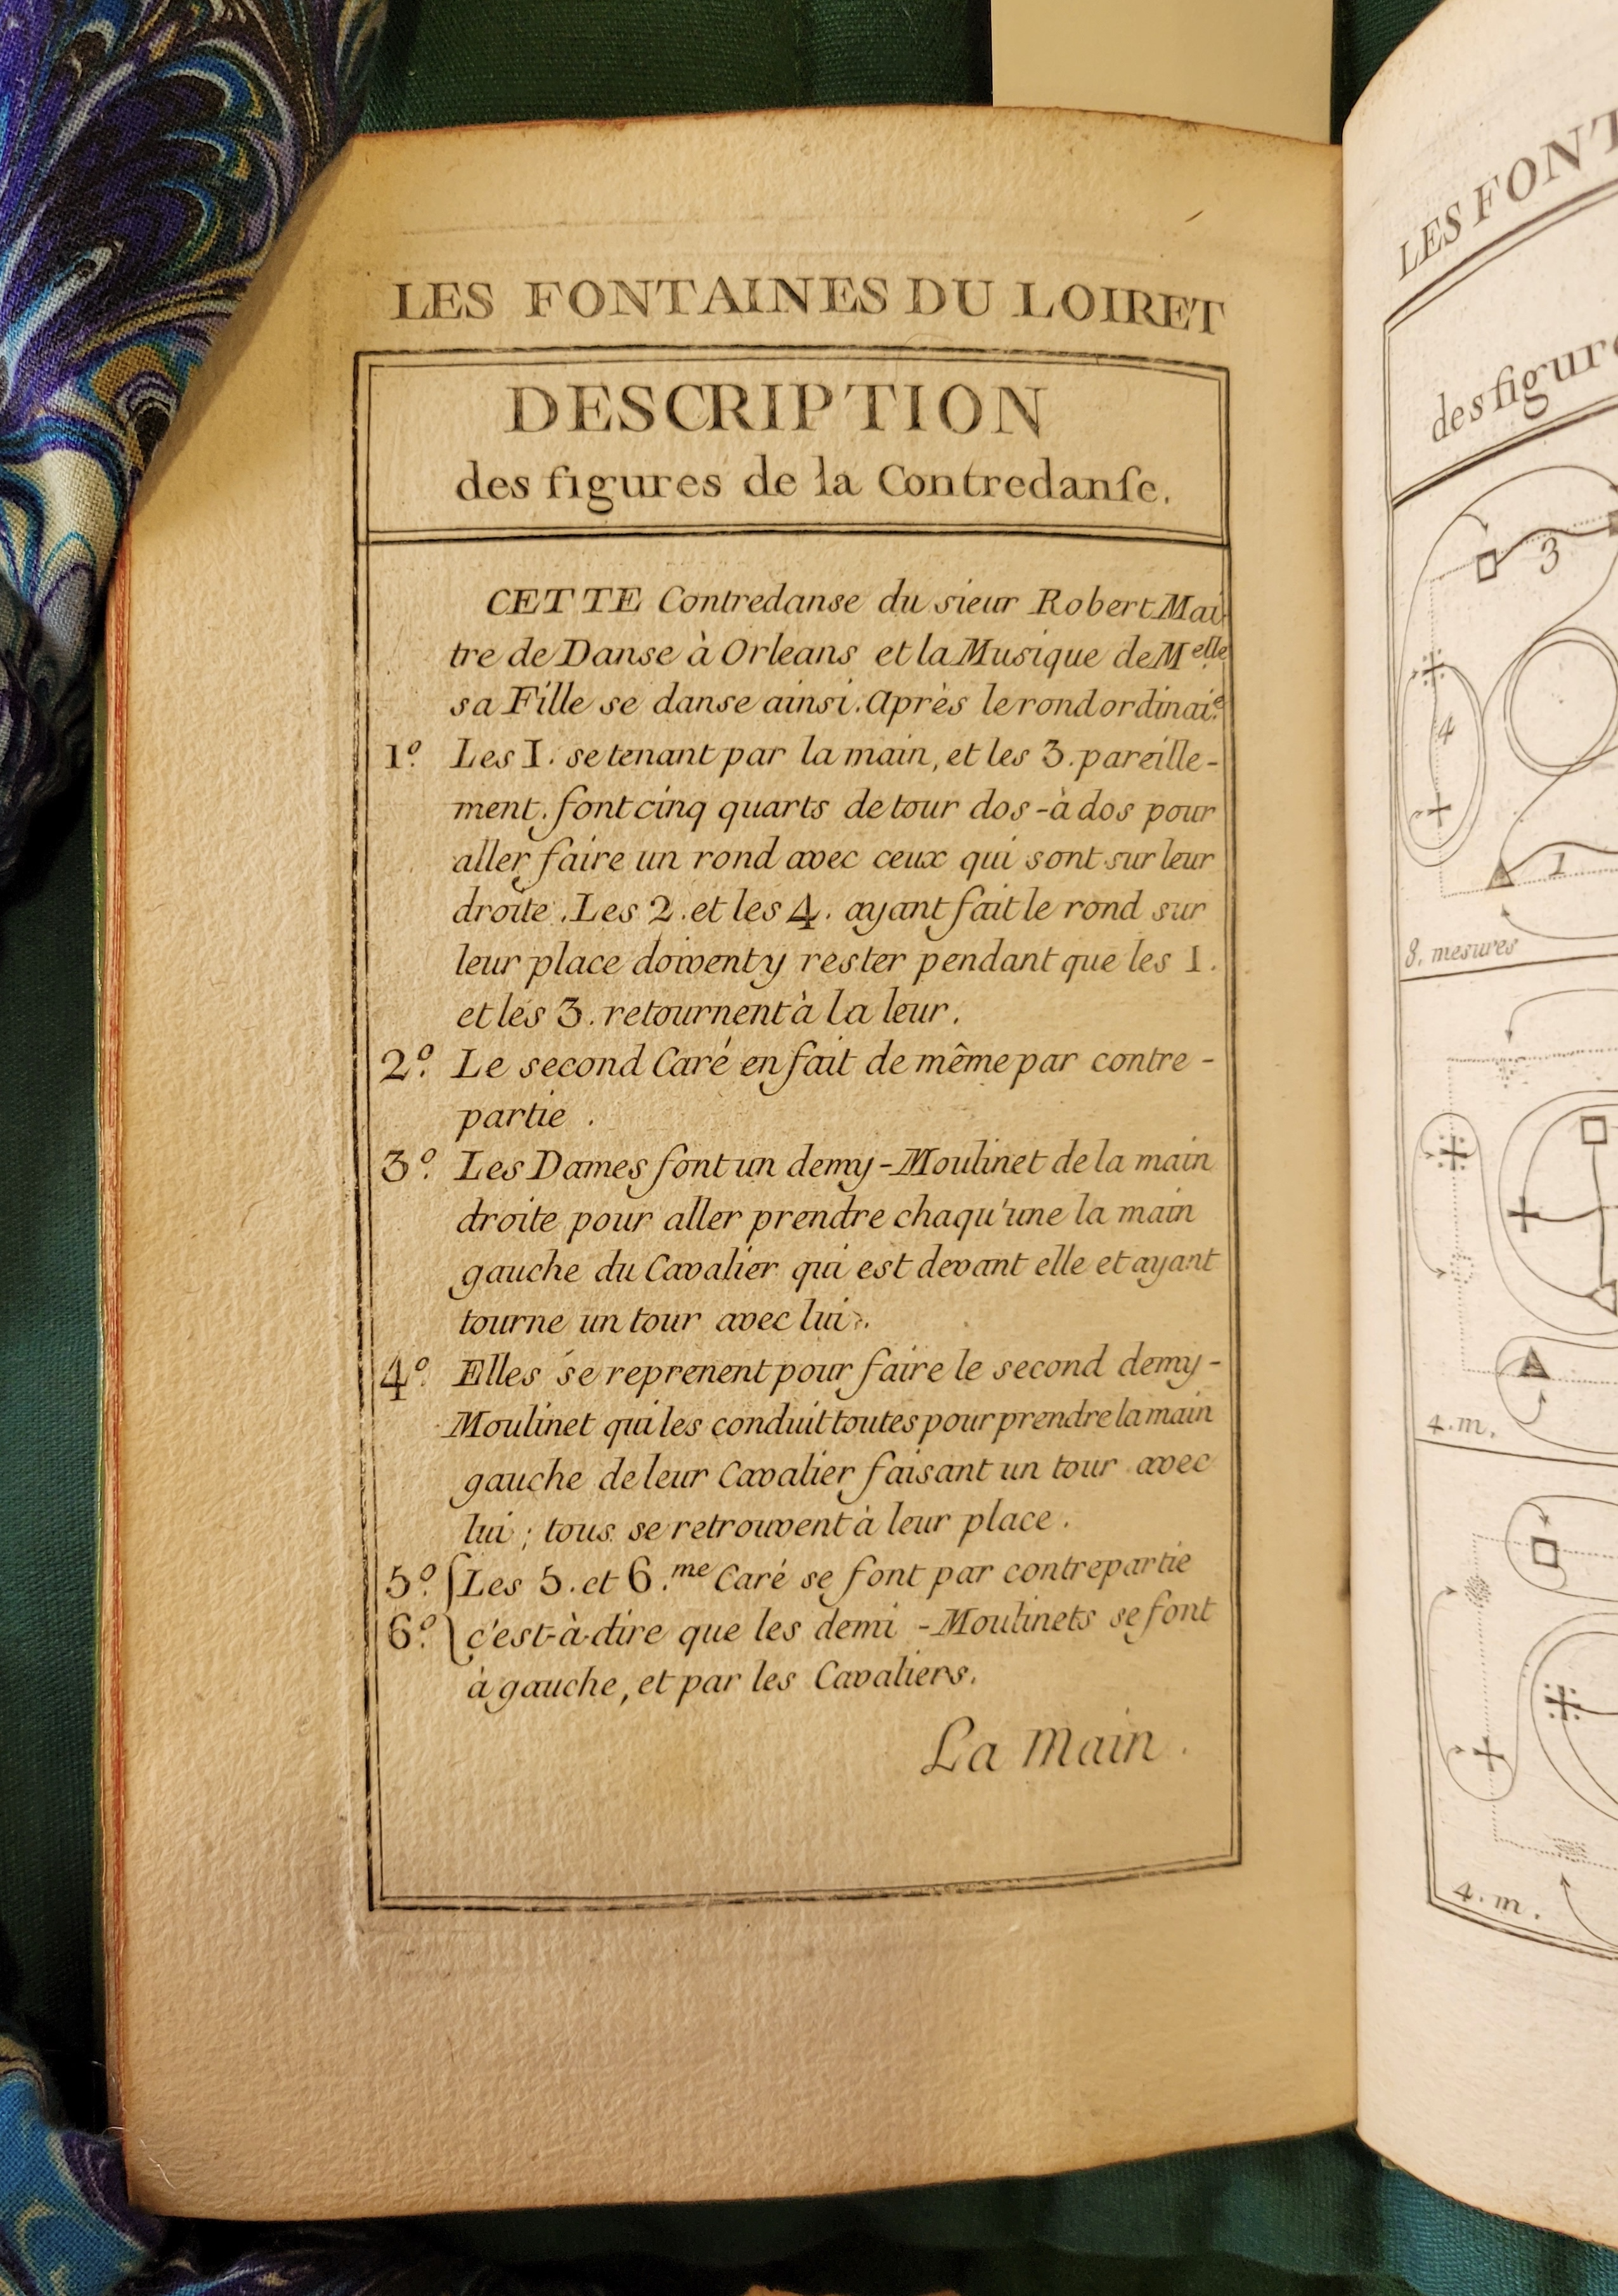 LES FONTAINES DU LOIRET
DESCRIPTION
des figures de la Contredanſe.
CETTE Contredanse du sieur Robert Mai
tre de Danse à Orleans et la Musique de Melle
sa Fille se danse ainsi. Après le rond ordinaire.
1º. Les I. se tenant par la main, et les 3. pareille-
ment. font cinq quarts de tour dos-à dos pour
aller faire un rond avec ceux qui sont sur leur
droite. Les 2. et les 4. ayant fait le rond sur
leur place doivent y rester pendant que les I.
et les 3. retournent à la leur.
2º. Le second Caré en fait de même par contre-
partie.
3º. Les Dames font un demy-Moulinet de la main
droite pour aller prendre chaqu'une la main
gauche du Cavalier qui est devant elle et ayant
tourne un tour avec lui.
4º. Elles se reprenent pour faire le second demy-
Moulinet qui les conduit toutes pour prendre la main
gauche de leur Cavalier faisant un tour avec
lui; tous se retrouvent à leur place.
5º. Les 5. et 6.me Caré se font par contrepartie
6º. c'est-à-dire que les demi-Moulinets se font
à gauche, et par les Cavaliers.
La Main.
LES FONT
des figur
3
4
1
8. mesures
4. m.
4. m.